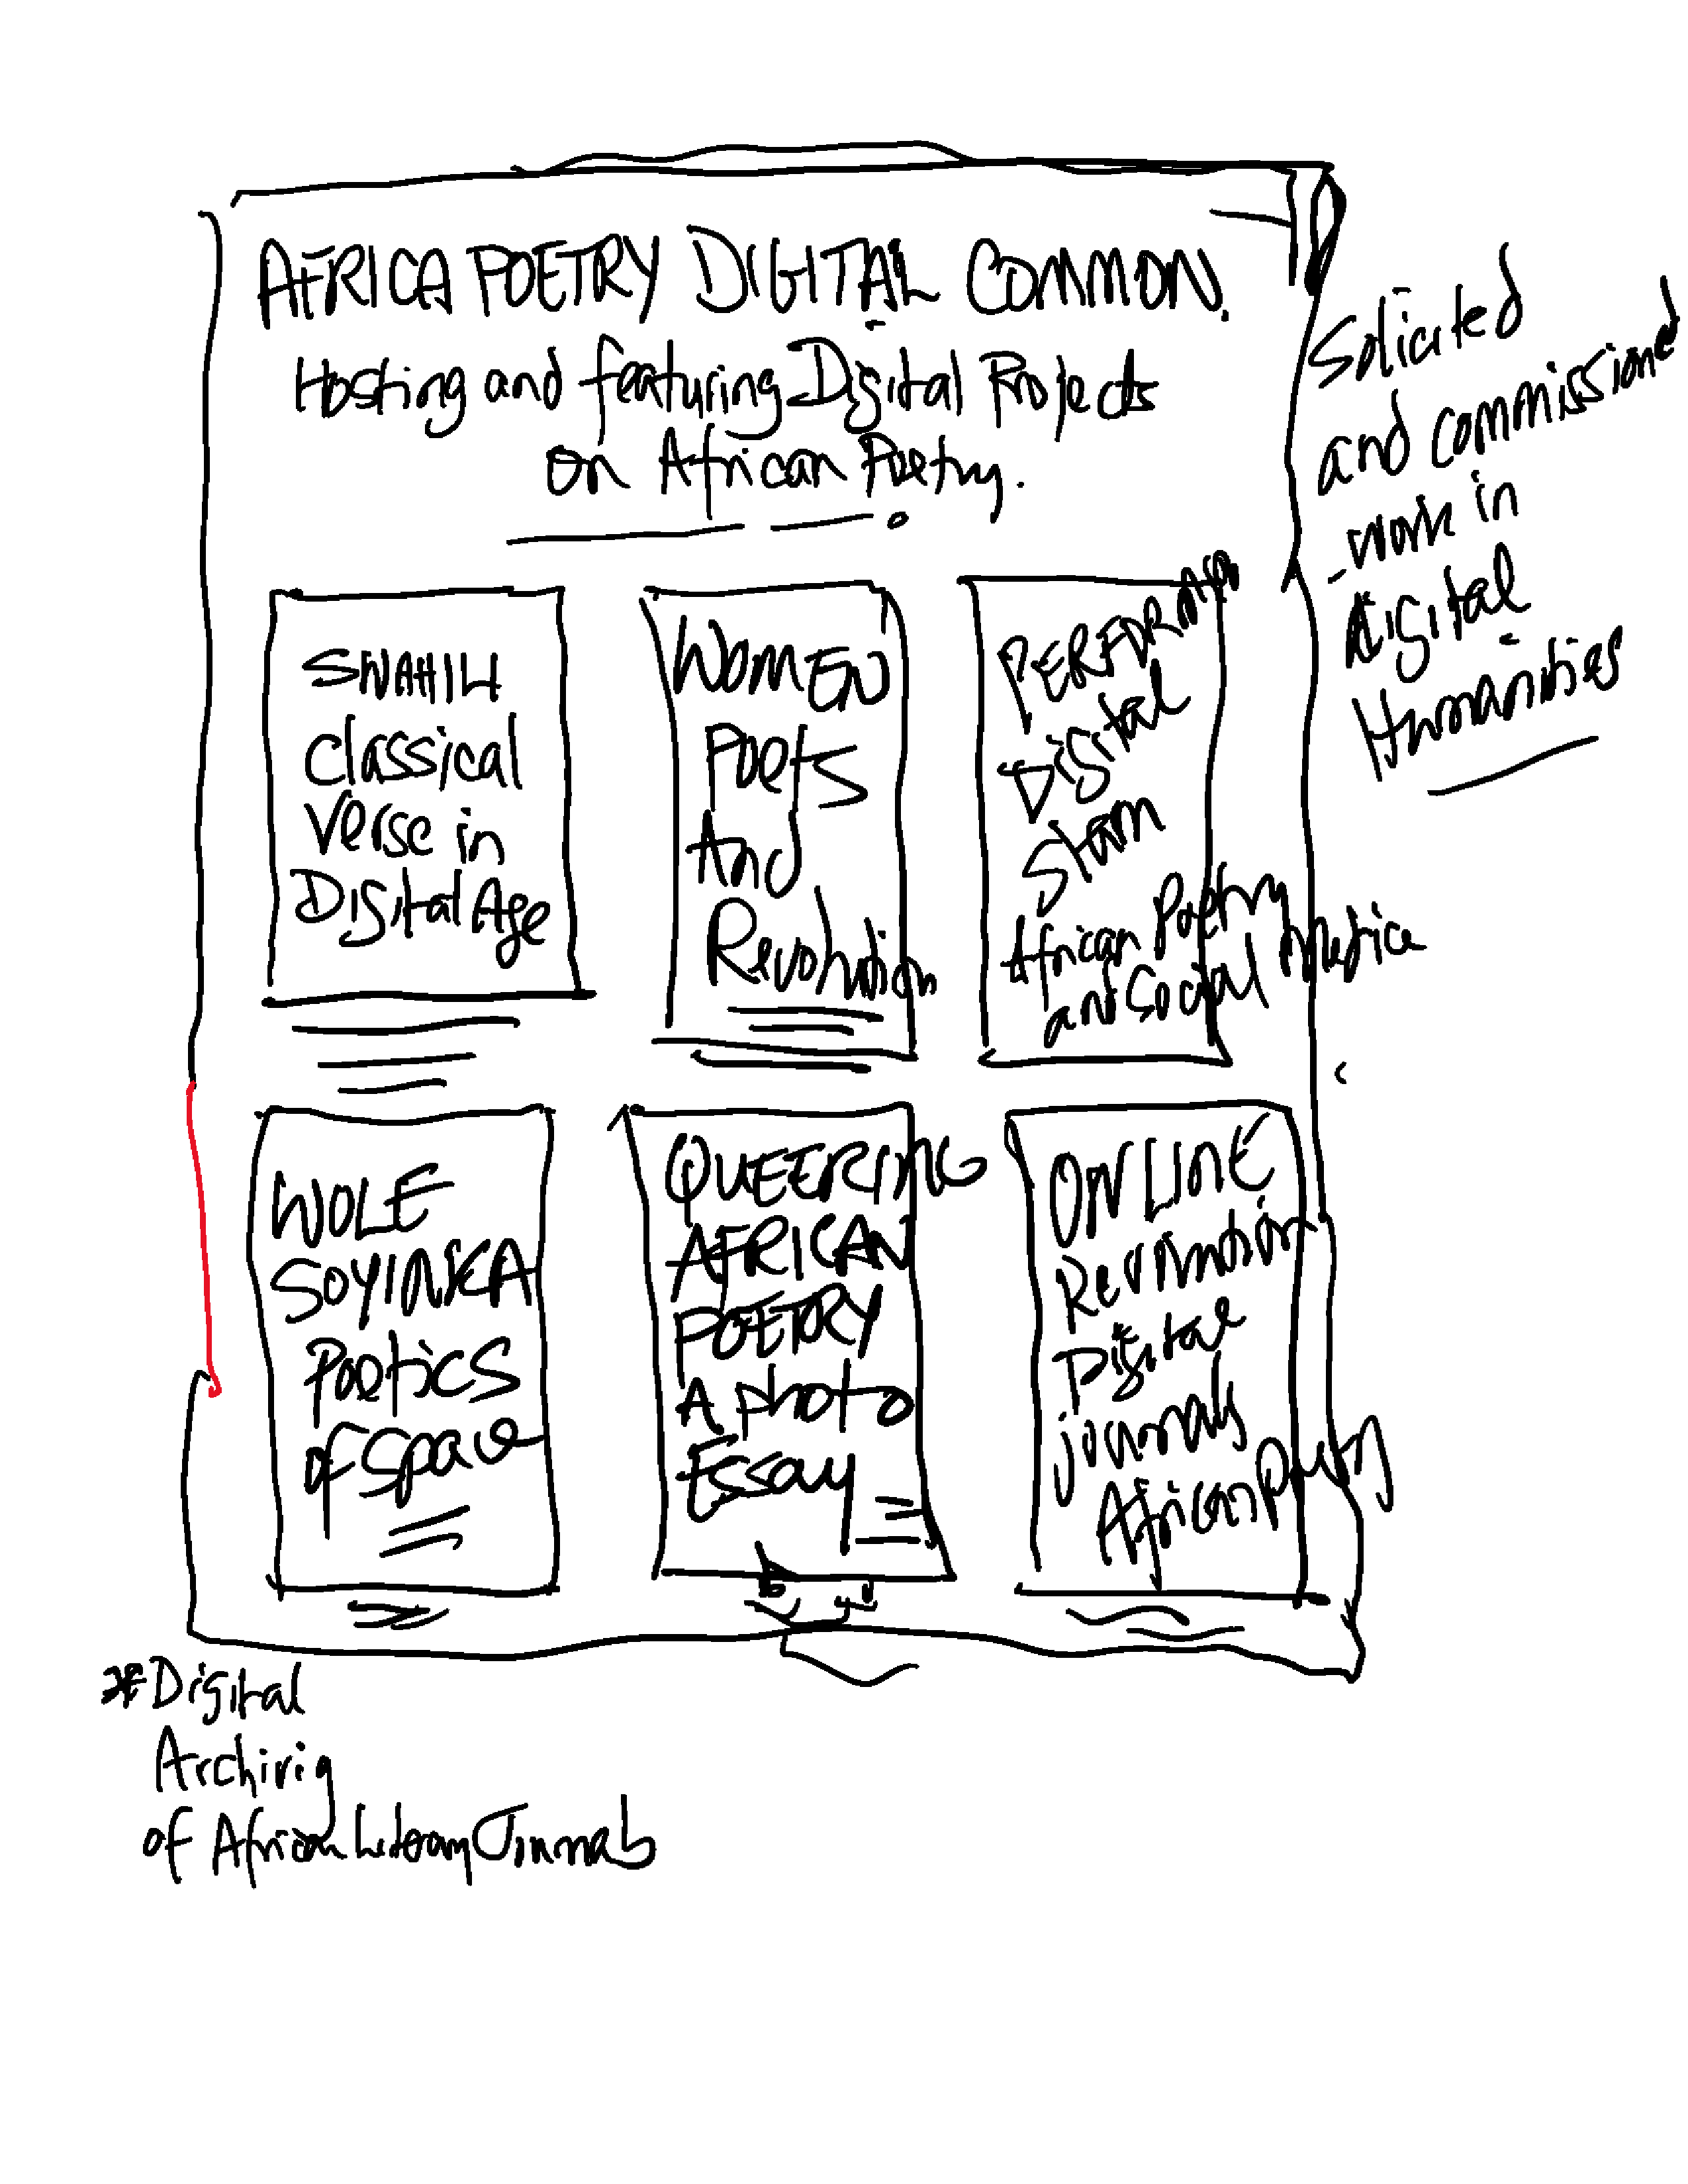 AFRICA POETRY DIGITAL COMMON.
Hosting and featuring Digital Projects
on African Poetry.
Solicited
and commissioned
work in
digital
Humanities
SWAHILI
Classical
Verse in
Digital Age
WOMEN
Poets
And
Revolution
Digital
African Poetry
and Social Media
WOLE
SOYINKA
Poetics
of Space
QUEERING
AFRICAN
POETRY
A photo
Essay
ONLINE
Digital
journals
African Poetry
*Digital
Archivig
of African Literary Journals